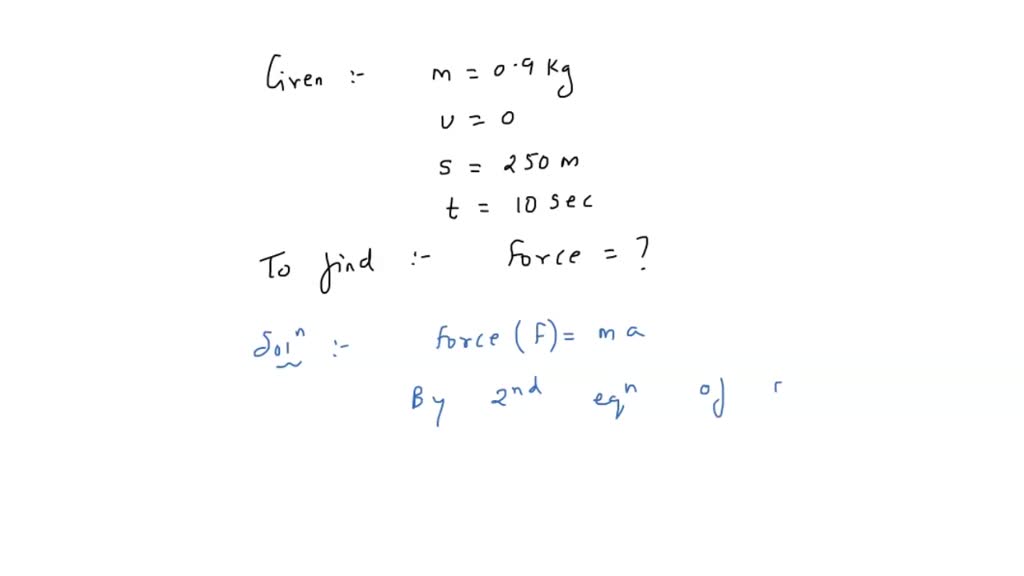 Given :- m = 0.9 Kg
u = 0
s = 250 m
t = 10 sec
To find :- force = ?
Solⁿ :- force (F) = ma
By 2nd eqⁿ of